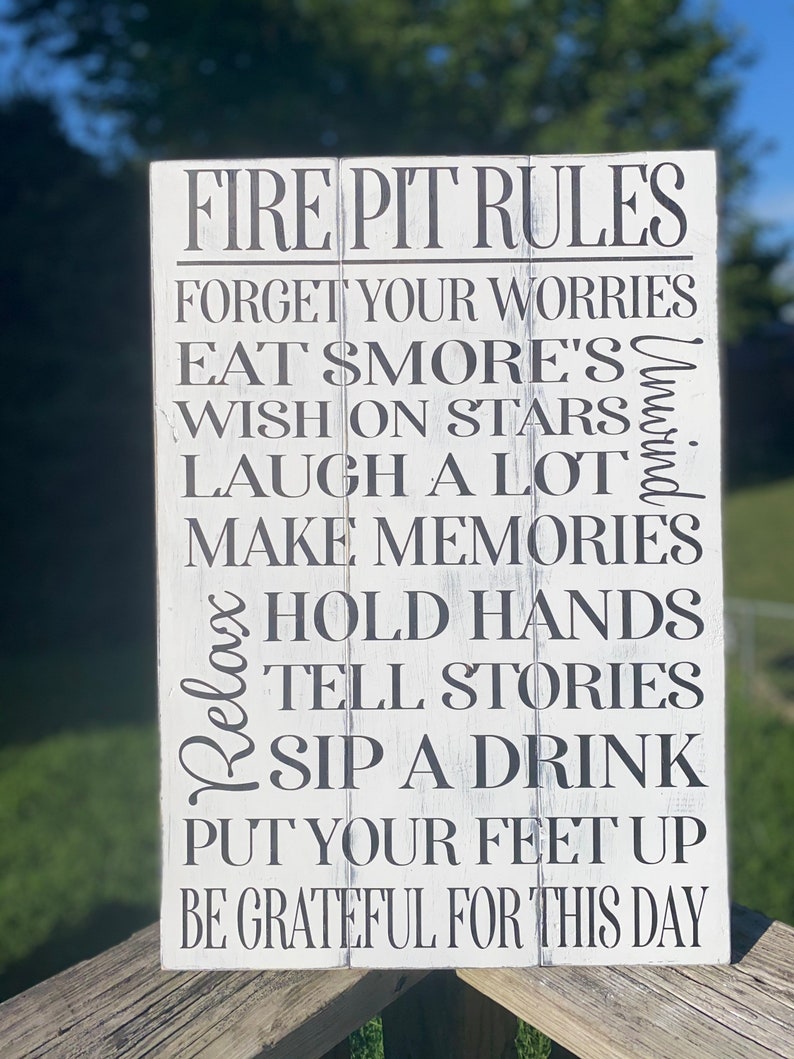 FIRE PIT RULES
FORGET YOUR WORRIES
EAT SMORE'S
WISH ON STARS
LAUGH A LOT
Unwind
MAKE MEMORIES
Relax
HOLD HANDS
TELL STORIES
SIP A DRINK
PUT YOUR FEET UP
BE GRATEFUL FOR THIS DAY